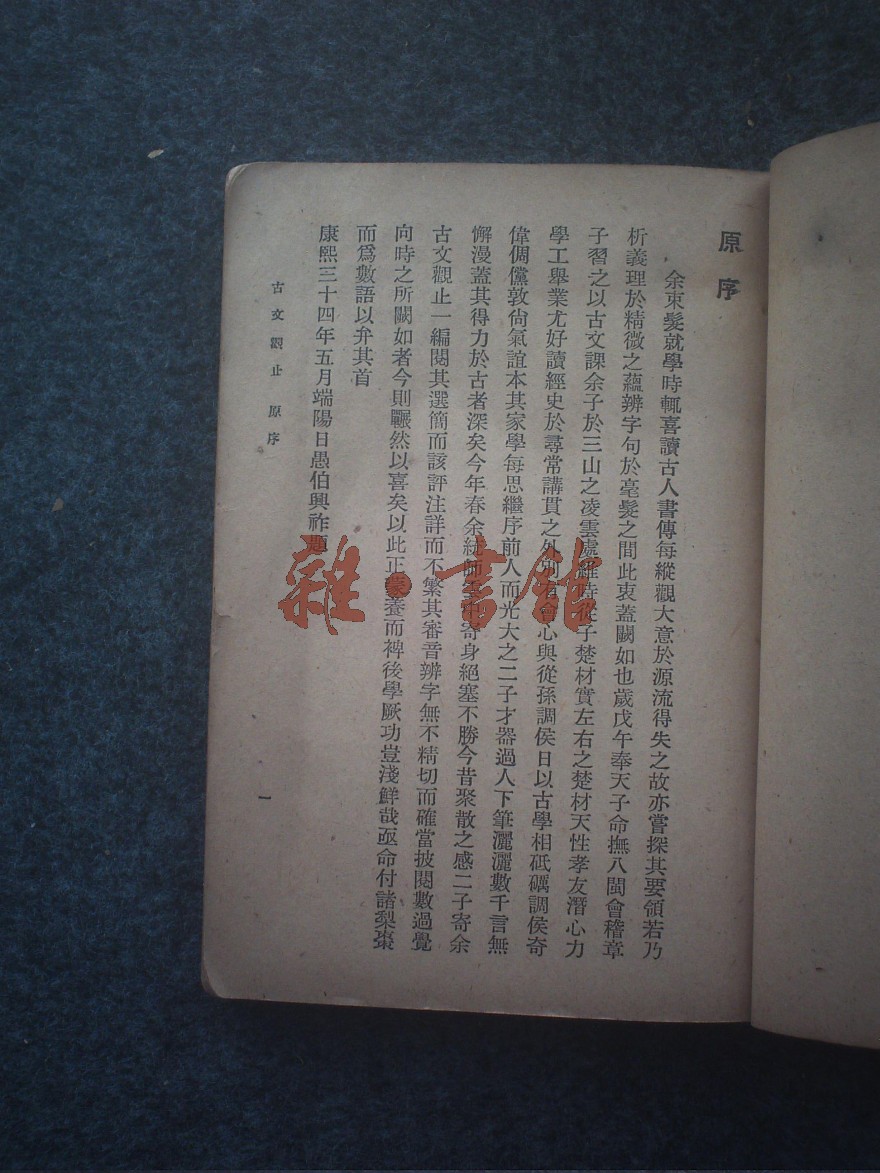 原序
余束髮就學時輒喜讀古人書傳每縱觀大意於源流得失之故亦嘗探其要領若乃
析義理於精微之蘊辨字句於毫髮之間此衷蓋闕如也歲戊午奉天子命撫八閩會稽章
子習之以古文課余子於三山之凌雲處維時從子楚材實左右之楚材天性孝友潛心力
學工舉業尤好讀經史於尋常講貫之外別有會心與從孫調侯日以古學相砥礪調侯奇
偉倜儻敦尙氣誼本其家學每思繼序前人而光大之二子才器過人下筆灑灑數千言無
懈漫蓋其得力於古者深矣今年春余統師雲中寄身絕塞不勝今昔聚散之感二子寄余
古文觀止一編閱其選簡而該評注詳而不繁其審音辨字無不精切而確當披閱數過覺
向時之所闕如者今則囅然以喜矣以此正蒙養而裨後學厥功豈淺鮮哉亟命付諸梨棗
而爲數語以弁其首
康熙三十四年五月端陽日愚伯興祚題
古文觀止 原序
一
雜·書館